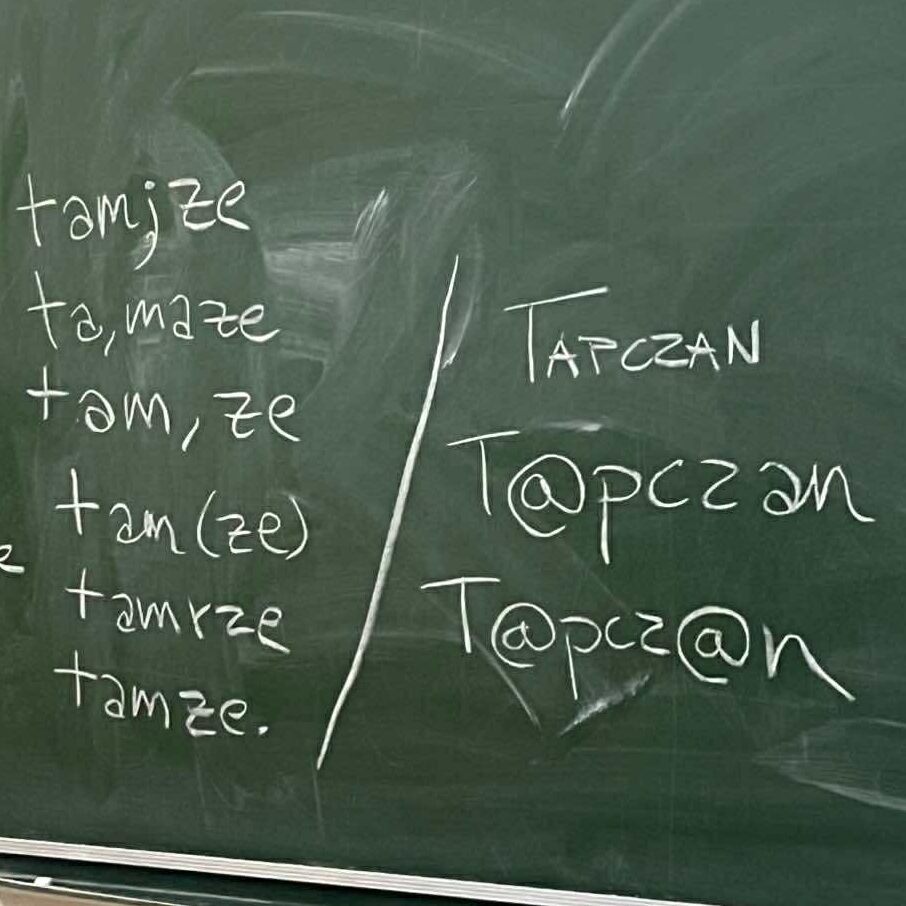 tam;ze
ta,maze
tam,ze
tam(ze)
tamrze
tamze.
TAPCZAN
T@pczan
T@pcz@n